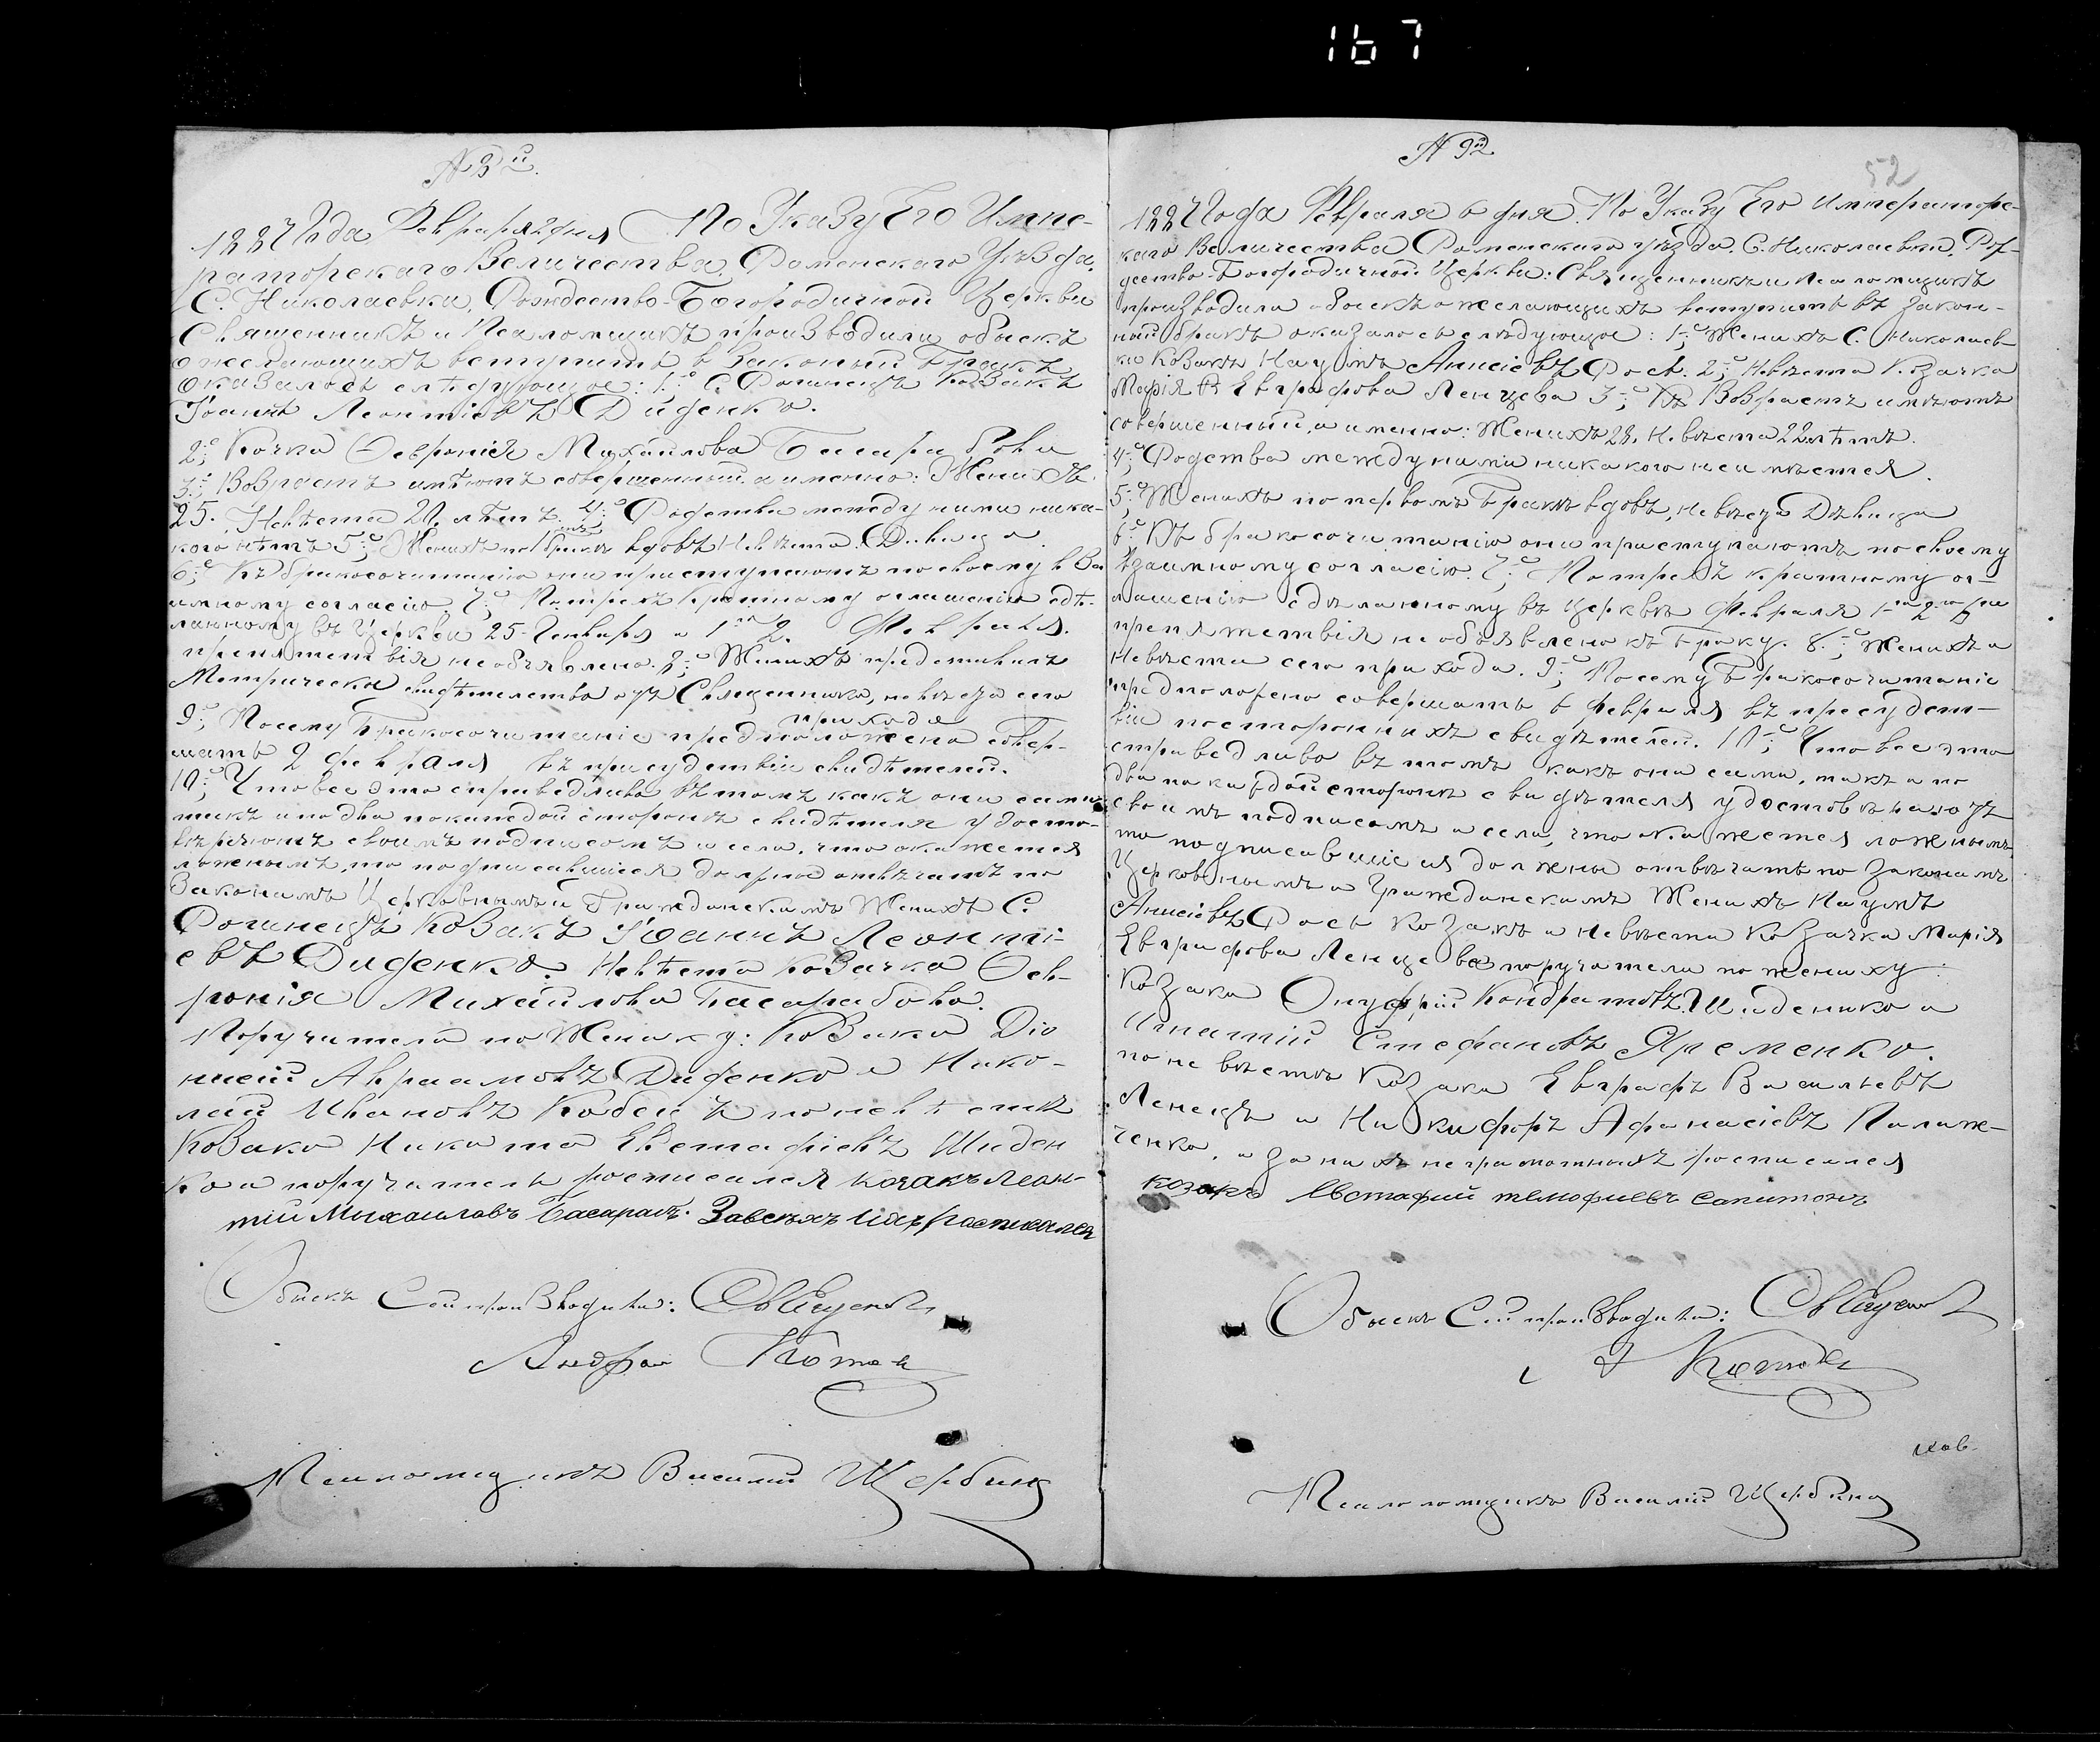 167
№ 8й.
1887 Года Февраля 2 дня По Указу Его Импе-
раторскаго Величества, Роменскаго Уѣзда.
С. Николаевки, Рождество-Богородичной Церкви
Священникъ и Псаломщикъ производили обыскъ
о желающихъ вступить в Законый Бракъ
оказалось слѣдующое: 1;е С. Рогинецъ Козакъ
Іоаннъ Леонтіевъ Диденко.
2;е Кочка Февронія Михаилова Басарабова
3;е Возрастъ имѣютъ совершенный а именно: Женихъ
25. Невѣста 21 лѣтъ. 4;е Родства между ними ника-
кого нѣтъ 5;е Женихъ по 1 бракѣ вдовъ Невѣста Дѣвица
6;е Къ бракосочитанію они приступаютъ по своему вза
имному согласію. 7;е Потрехъ кратному оглашенію сдѣ-
ланному въ Церкви 25 Генваря и 1го 2. Февраля.
препятствія необъявлено. 8;е Женихъ представилъ
Метрическое свидѣтельство отъ Священника, невѣста сего
прихода
9;е Посему Бракосочитаніе предположено совер-
шать 2 Февраля въ присудствіи свидѣтелей.
10;е Что все это справедливо въ томъ какъ они сами
такъ и по два покаждой сторонѣ свидѣтеля удосто-
вѣряютъ своимъ подписомъ и если, что окажется
ложнымъ, то подписавшіеся должны отвѣчать по
Законамъ Церковнымъ и Гражданскимъ Женихъ С.
Рогинецъ Козакъ Іоаннъ Леонті-
евъ Диденко. Невѣста Козачка Фев-
ронія Михаилова Басарабова.
Поручители по Жениху: Козаки Діо
нисій Авраамовъ Диденко и Нико-
лай Ивановъ Кобец и поневѣстѣ
Козаки Никита Евстафіевъ Шиден
ко и поручитель росписался козакъ Леон-
тий Михаиловъ Басарабъ. Завсехъ ихъ расписался
Обыскъ Сей производили: Священ
Андрей Котел
Псаломщикъ Василій Щербина
№ 9й
52
1887 Года Февраля 6 дня. По Указу Его Императорс-
каго Величества Роменскаго уѣзда. С. Николаевки. Рож-
дество-Богородичной Церкви: Священникъ и Псаломщикъ
производили обыскъ о желающихъ вступить въ закон-
ный бракъ оказалось слѣдующое: 1;е Женихъ С. Николаев
ки Козакъ Наумъ Анисіевъ Рось. 2;е Невѣста Козачка
Марія Евграфова Ленцева 3;е Возрастъ имѣютъ
совершенный, а именно: Женихъ 28. Невѣста 22 лѣтъ.
4;е Родства между ними никакого неимѣется.
5;е Женихъ по первомъ бракѣ вдовъ, невѣста Дѣвица
6;е Къ бракосочитанію они приступаютъ по своему
взаимному согласію. 7;е Потрехъ кратному ог-
лашенію сдѣланному въ Церквѣ Февраля 1го 2го 6го
препятствія необъявлено къ браку. 8;е Женихъ и
Невѣста сего прихода. 9;е Посему Бракосочитаніе
предположено совершать 6 Февраля въ присудст-
віи постороннихъ свидѣтелей. 10;е Что все это
справедливо въ томъ какъ они сами, такъ и по
два покаждой сторонѣ свидѣтеля удостовѣряютъ
своимъ подписомъ и если, что окажется ложнымъ
то подписавшіеся должны отвѣчать по Законамъ
Церковнымъ и Гражданскимъ Женихъ Наумъ
Анисіевъ Рось Козакъ и Невѣста Козачка Марія
Евграфова Ленцева поручители по жениху:
Козаки Онуфрій Кондратовъ Шиденко и
Игнатій Стефановъ Яременко.
по невѣстѣ Козаки Евграфъ Васильевъ
Ленецъ и Никифоръ Афанасіевъ Палаж-
ченко, и за нихъ неграмотныхъ росписался
козакъ Евстафий тимофиевъ Сапитонъ
Обыскъ Сей производили: Священ
Котел
Псаломщикъ Василій Щербина